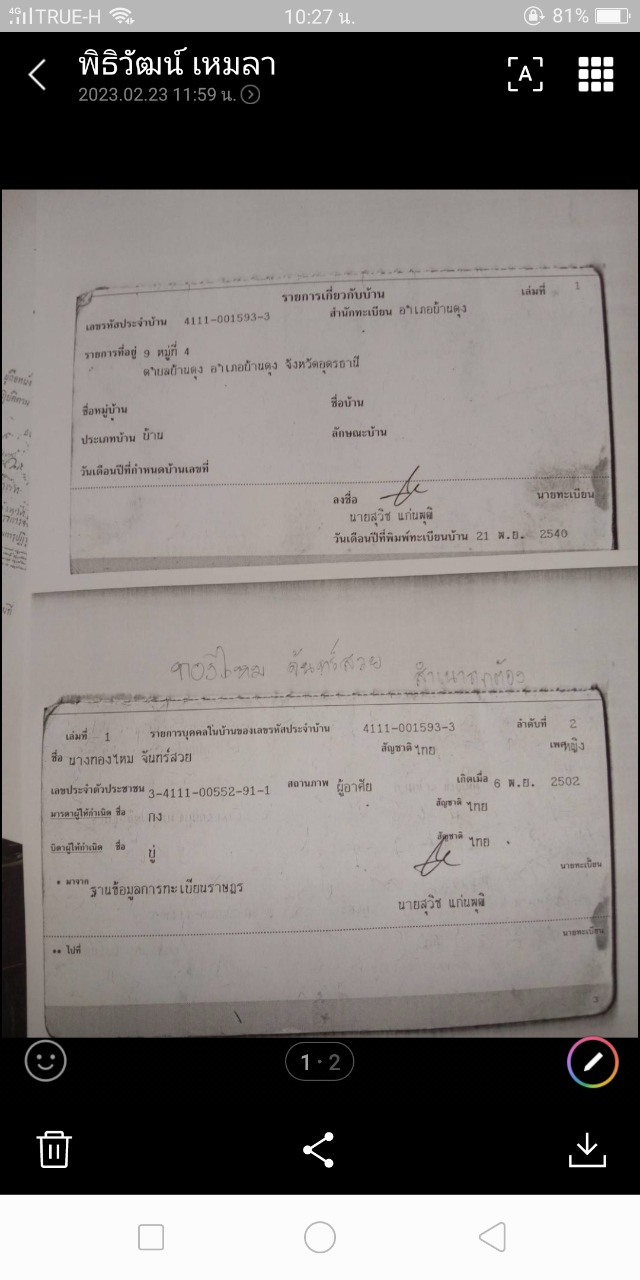 4G TRUE-H 10:27 น. 81%
พิธิวัฒน์ เหมลา
2023.02.23 11:59 น.
A
รายการเกี่ยวกับบ้าน เล่มที่ 1
เลขรหัสประจำบ้าน 4111-001593-3 สำนักทะเบียน อำเภอบ้านดุง
รายการที่อยู่ 9 หมู่ที่ 4
ตำบลบ้านดุง อำเภอบ้านดุง จังหวัดอุดรธานี
ชื่อหมู่บ้าน ชื่อบ้าน
ประเภทบ้าน บ้าน ลักษณะบ้าน
วันเดือนปีที่กำหนดบ้านเลขที่
ลงชื่อ นายทะเบียน
นายสุวิช แก่นพุฒิ
วันเดือนปีที่พิมพ์ทะเบียนบ้าน 21 พ.ย. 2540
ทองไหม จันทร์สวย สำเนาถูกต้อง
เล่มที่ 1 รายการบุคคลในบ้านของเลขรหัสประจำบ้าน 4111-001593-3 ลำดับที่ 2
ชื่อ นางทองไหม จันทร์สวย สัญชาติ ไทย เพศ หญิง
เลขประจำตัวประชาชน 3-4111-00552-91-1 สถานภาพ ผู้อาศัย เกิดเมื่อ 6 พ.ย. 2502
มารดาผู้ให้กำเนิด ชื่อ กง สัญชาติ ไทย
บิดาผู้ให้กำเนิด ชื่อ ปู่ สัญชาติ ไทย
* มาจาก ฐานข้อมูลการทะเบียนราษฎร นายทะเบียน
นายสุวิช แก่นพุฒิ
** ไปที่ นายทะเบียน
3
1 · 2